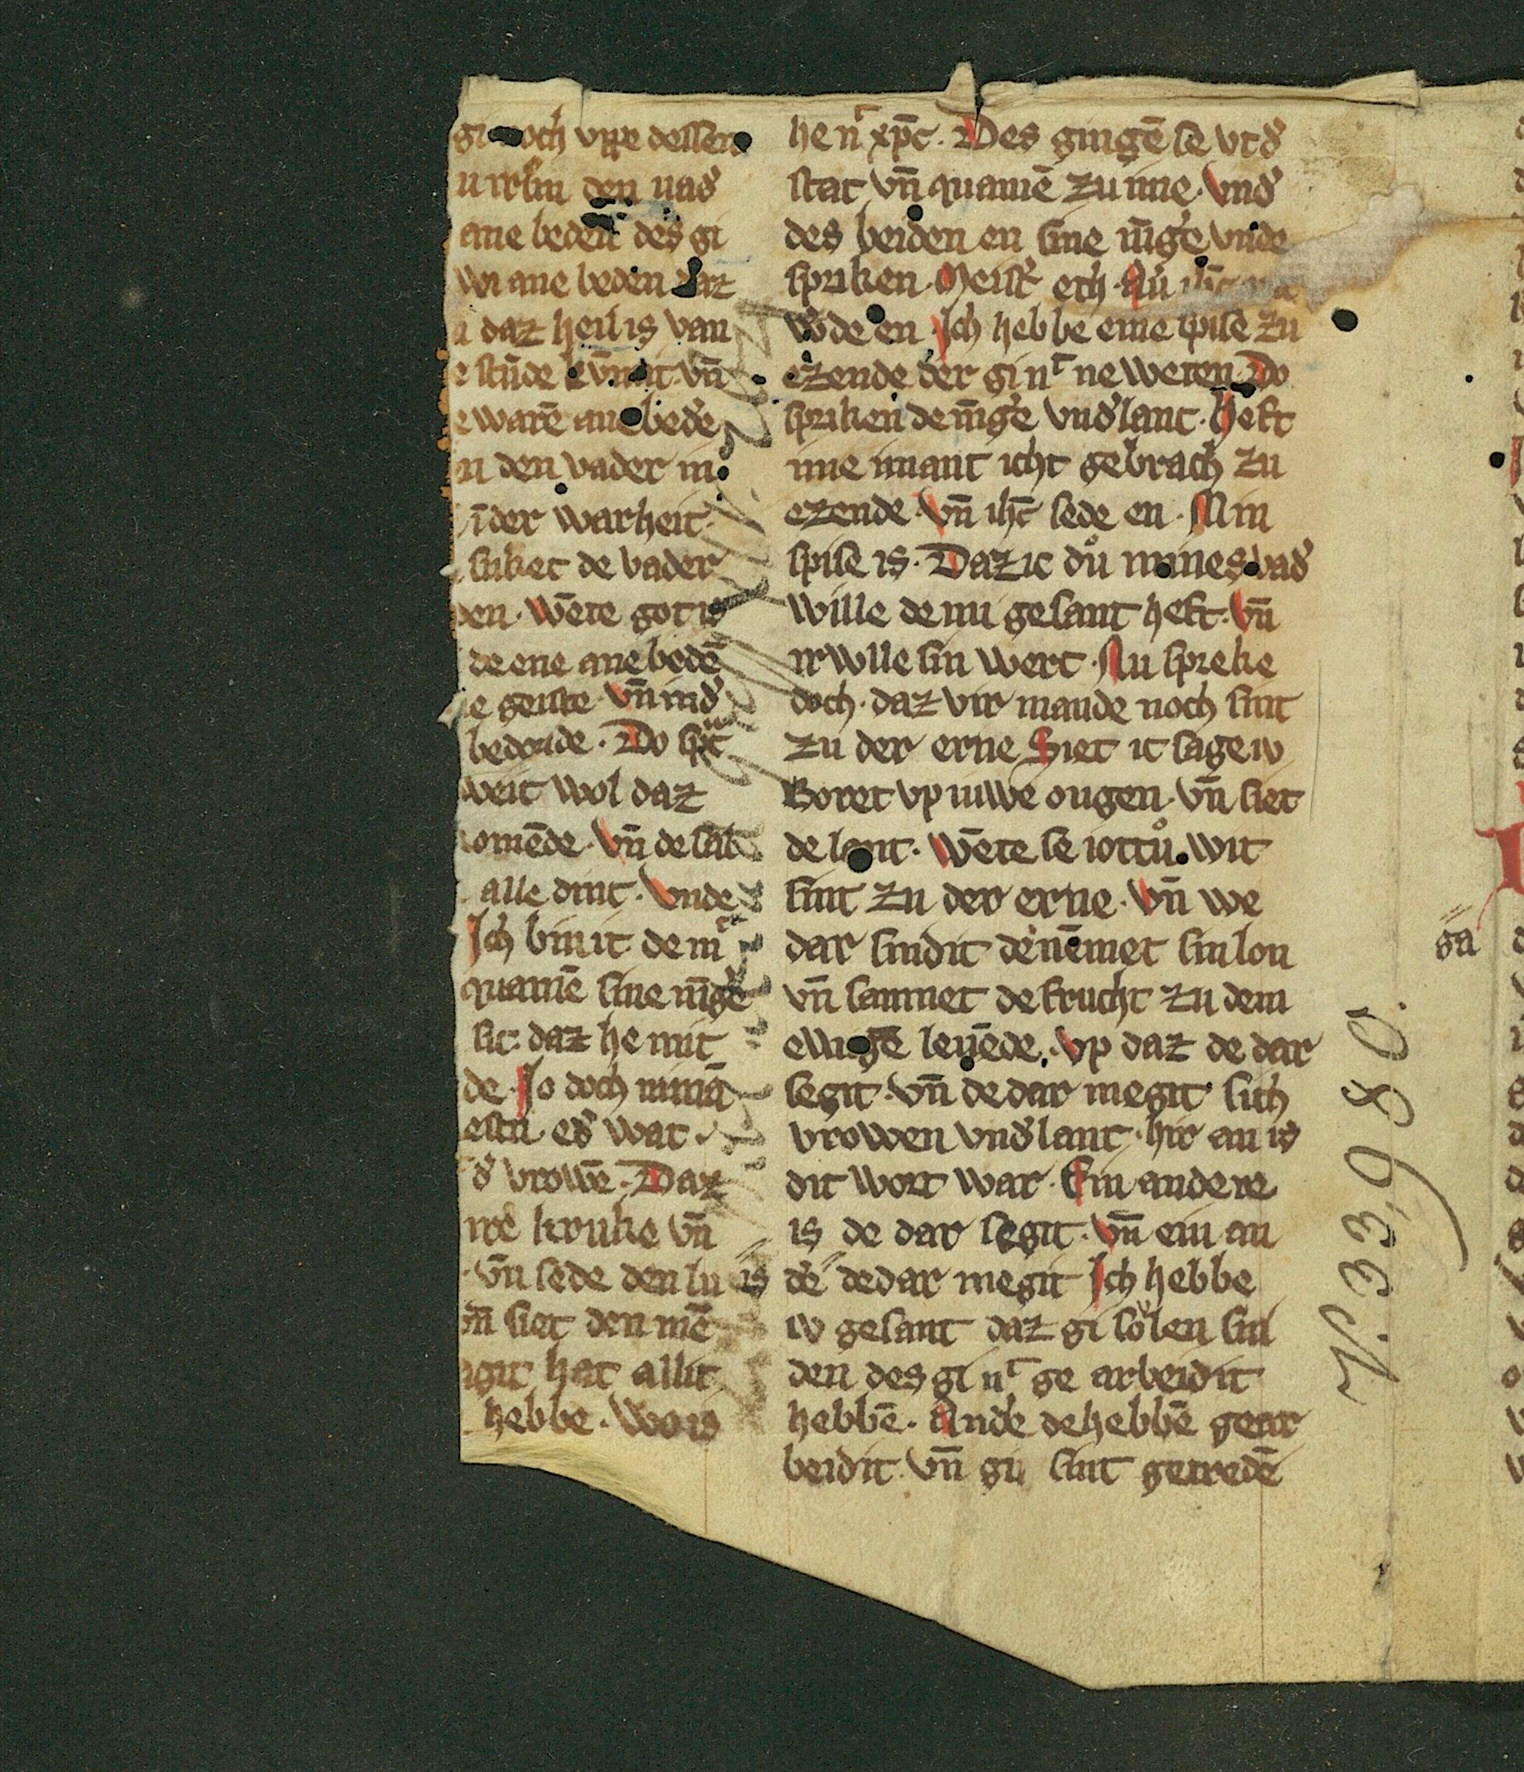 gi noch vppe dessen
u irlin den uad̓
ane beden des gi
wi ane beden daz
daz heil is van
e stūde kūmit vn̄
e warē ane bedē
n den vader in
īder warheit
suket de vader
en. Wēte got is
de ene ane bedē
e geiste vn̄ ind̓
bedende. Do sp̄c
weit wol daz
omēde. Vn̄ de sal
alle dint. Vnde
Ich bin it de m
quamē sine iūg̓e
sic. daz he mit
de. Io doch niman
estu. es̓ wat
d̓ vrowē. Daz
ire kruke vn̄
vn̄ sede den lu
vn̄ siet den mē
agit hat allit
hebbe. Wo is
he nͭ xp̄c. Des gingē se vtd̓
stat vn̄ quamē zu ime. Vnd̓
des beiden en sine iūg̓e vnde
spriken. Meist̓ eth. Nu ih̄c
w̓de en. Ich hebbe eine spise zu
ezende der gi nͭ ne weten. Do
spriken de iūg̓e vnd̓lant. Heft
ime imant icht gebrach zu
ezende. Vn̄ ih̄c sede en. Min
spise is. Daz ic duͦ mines vad̓
wille de mi gesant heft. Vn̄
irwlle sin werc. Nu spreke
doch. daz vir mande noch sint
zu der erne. Siet ic sage iv
Boret vp iuwe ougen. vn̄ siet
de lant. Wēte se iottuͦ. wit
sint zu der erne. Vn̄ we
dar sindit de nēmet sin lon
vn̄ sammet de frucht zu dem
ewigē leuēde. Vp daz de dar
segit. vn̄ de dar megit sich
vrowen vnd̓lant. hir an is
dit wort war. Ein andere
is de dar segit. Vn̄ ein an
is de" de dar megit Ich hebbe
iv gesant daz gi solen sni
den des gi nͭ ge arbeidit
hebbē. Ande de hebbē gear
beidit. vn̄ gi sint getredē
ga
V. 33,980.